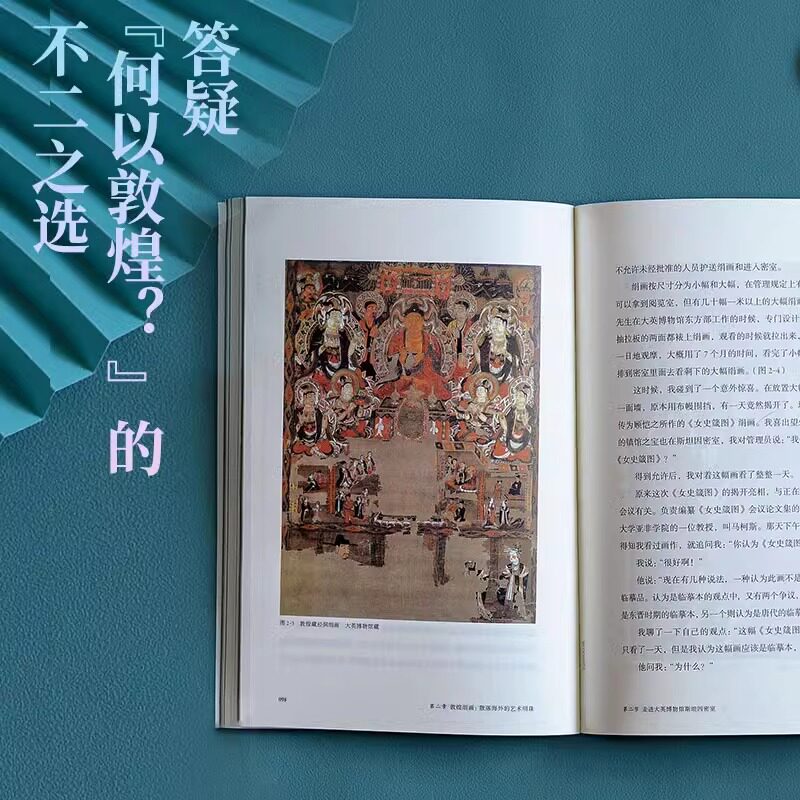 答疑
『何以敦煌？』的
不二之选
图 2-3 敦煌藏经洞绢画 大英博物馆藏
098
第二章 敦煌绢画：散落海外的艺术明珠
不允许未经批准的人员护送绢画和进入密室。
绢画按尺寸分为小幅和大幅，在管理规定上
可以拿到阅览室，但有几十幅一米以上的大幅绢
先生在大英博物馆东方部工作的时候，专门设计
抽拉板的两面都裱上绢画，观看的时候就拉出来，
一日地观摩，大概用了 7 个月的时间，看完了小
排到密室里面去看剩下的大幅绢画。（图 2-4）
这时候，我碰到了一个意外惊喜。在放置大
一面墙，原本用布幔围挡，有一天竟然揭开了。
传为顾恺之所作的《女史箴图》绢画。我喜出望
的镇馆之宝也在斯坦因密室，我对管理员说：“我
《女史箴图》？”
得到允许后，我对着这幅画看了整整一天。
原来这次《女史箴图》的揭开亮相，与正在
会议有关。负责编纂《女史箴图》会议论文集的
大学亚非学院的一位教授，叫马柯斯。那天下午
得知我看过画作，就追问我：“你认为《女史箴
我说：“很好啊！”
他说：“现在有几种说法，一种认为此画不是
临摹品。认为是临摹本的观点中，又有两个争议，
是东晋时期的临摹本，另一个则认为是唐代的临摹本，
我聊了一下自己的观点：“这幅《女史箴
只看了一天，但是我认为这幅画应该是临摹本，
他问我：“为什么？”
第二章 走进大英博物馆斯坦因密室